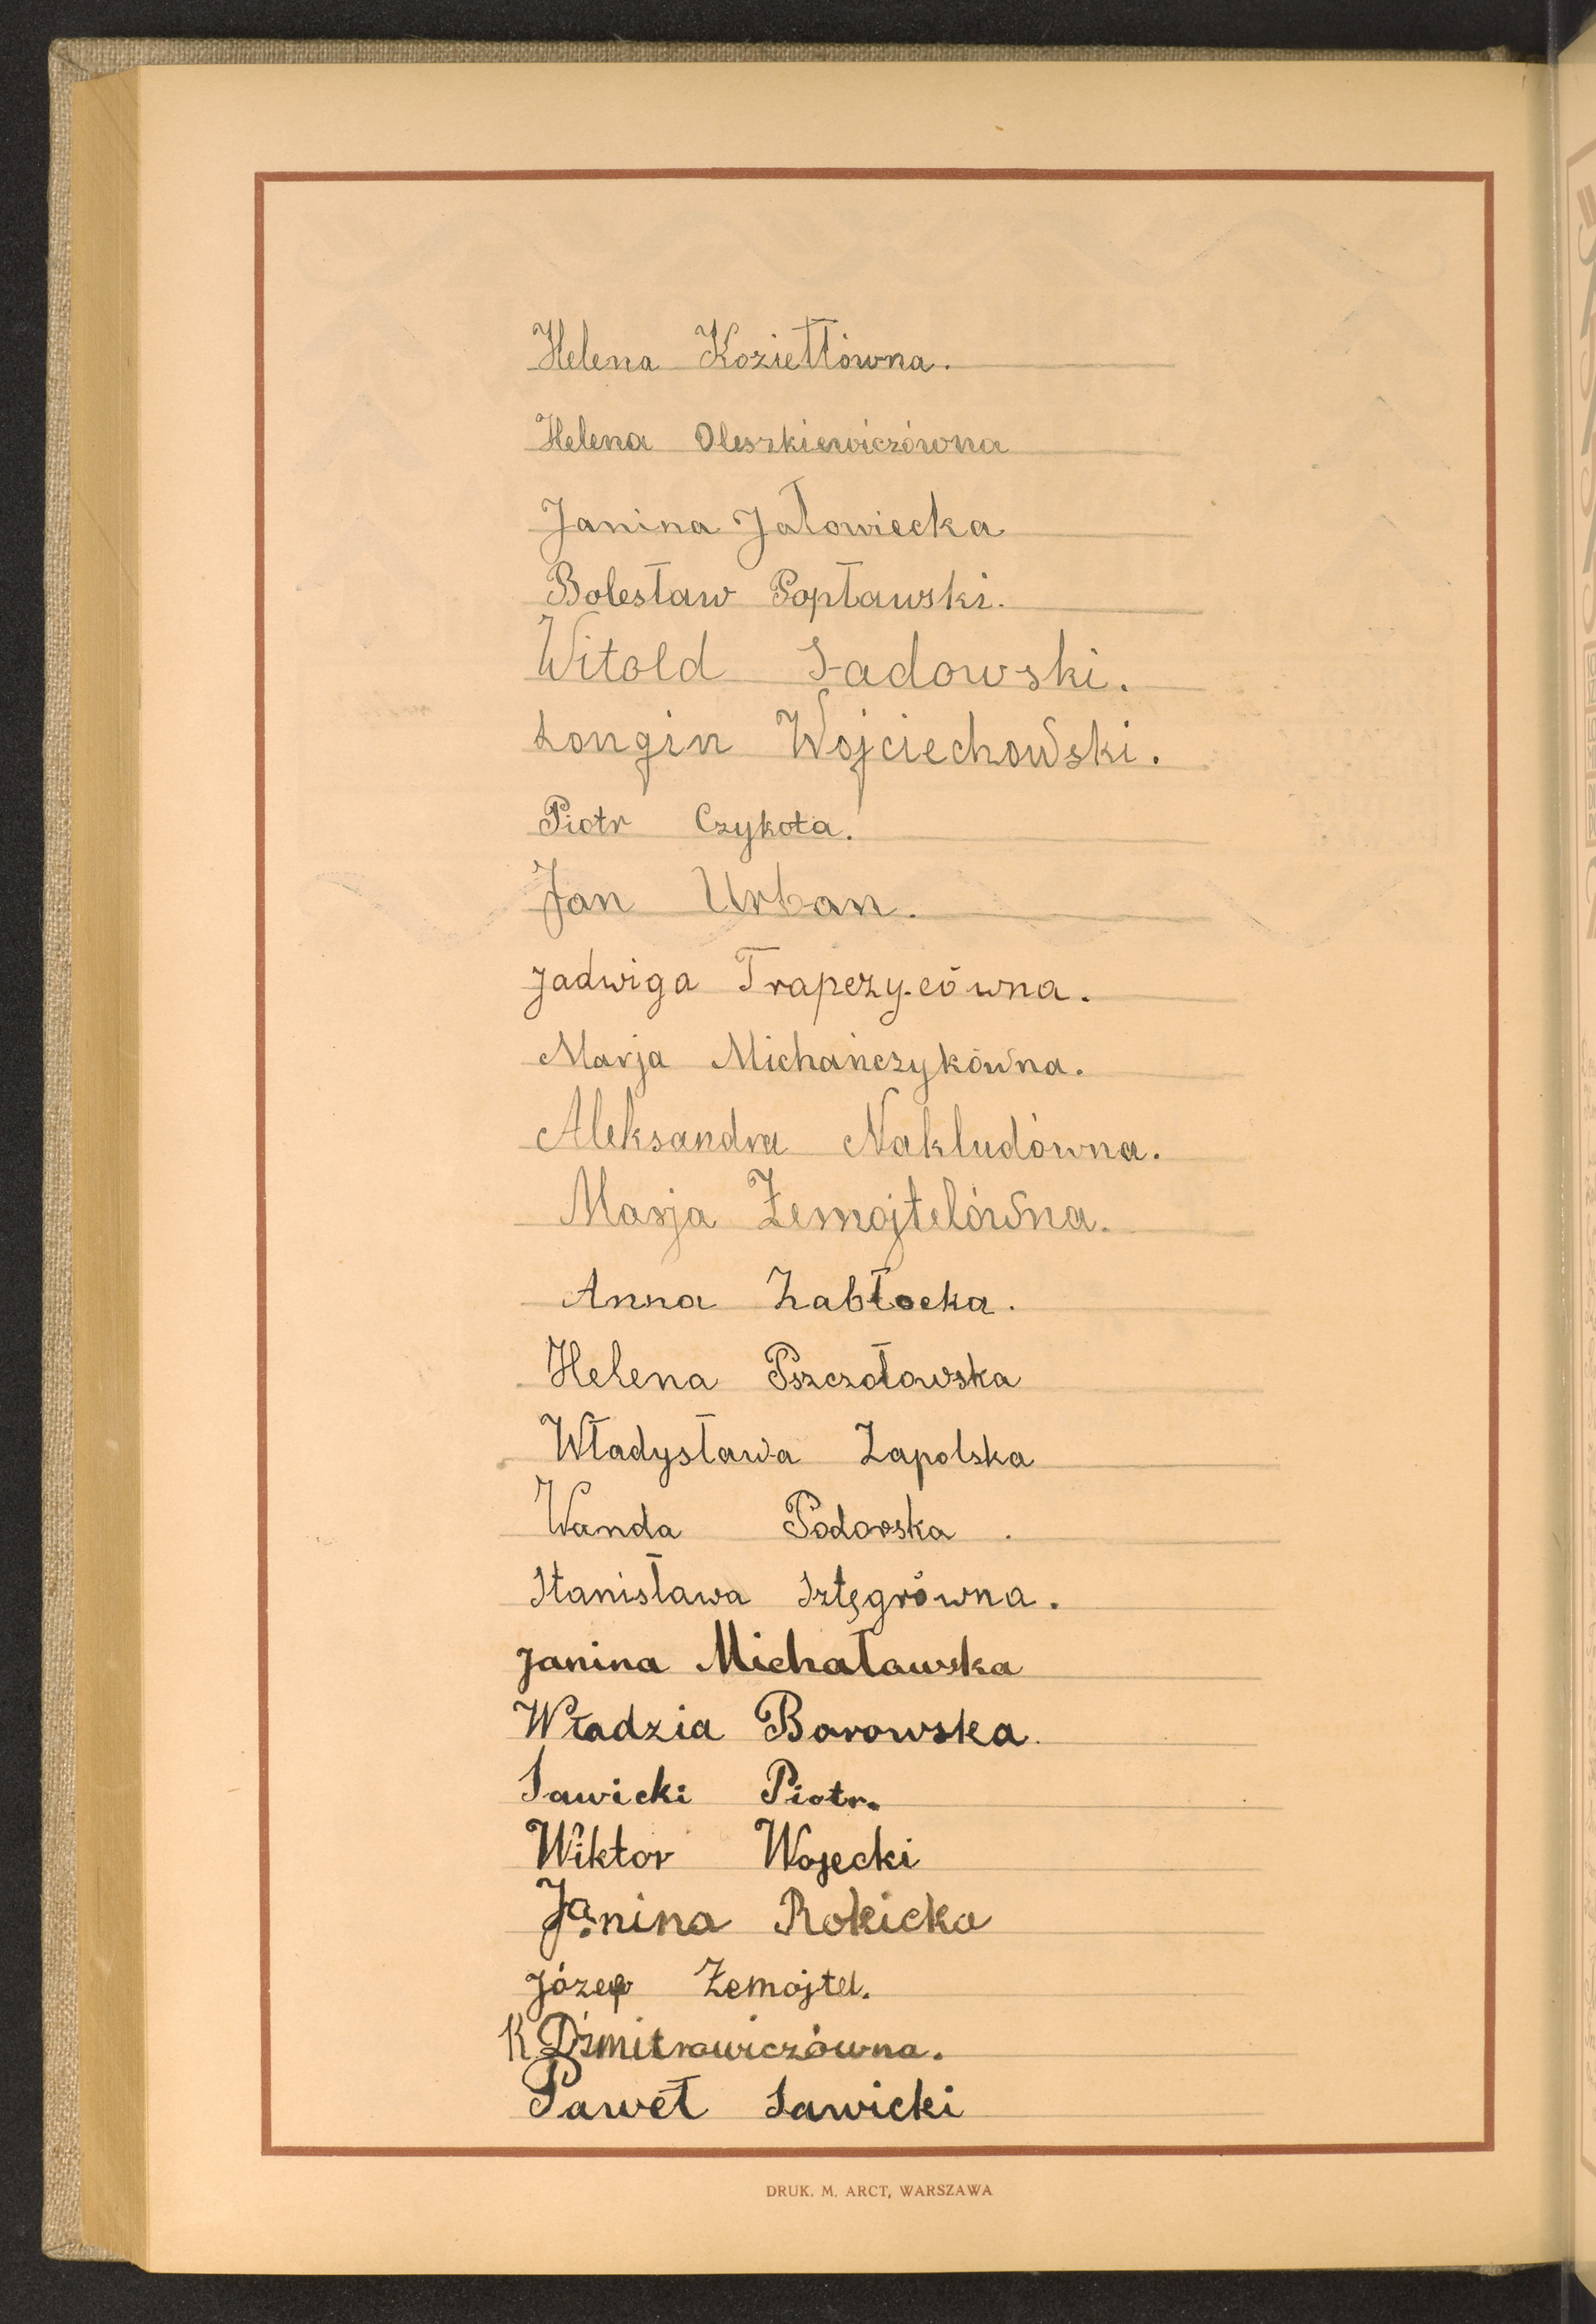 Helena Koziełłówna.
Helena Oleszkiewiczówna
Janina Jałowiecka
Bolesław Popławski.
Witold Sadowski.
Longin Wojciechowski.
Piotr Czykota.
Jan Urban.
Jadwiga Trapezycówna.
Marja Michańczykówna.
Aleksandra Nakludówna.
Marja Żemojtelówna.
Anna Zabłocka.
Helena Pszczołowska
Władysława Zapolska
Wanda Podorska.
Stanisława Sztęgrówna.
Janina Michałowska
Władzia Borowska.
Sawicki Piotr.
Wiktor Wojecki
Janina Rokicka
Józef Żemojtel.
K Dźmitrowiczówna.
Paweł Sawicki
DRUK. M. ARCT, WARSZAWA